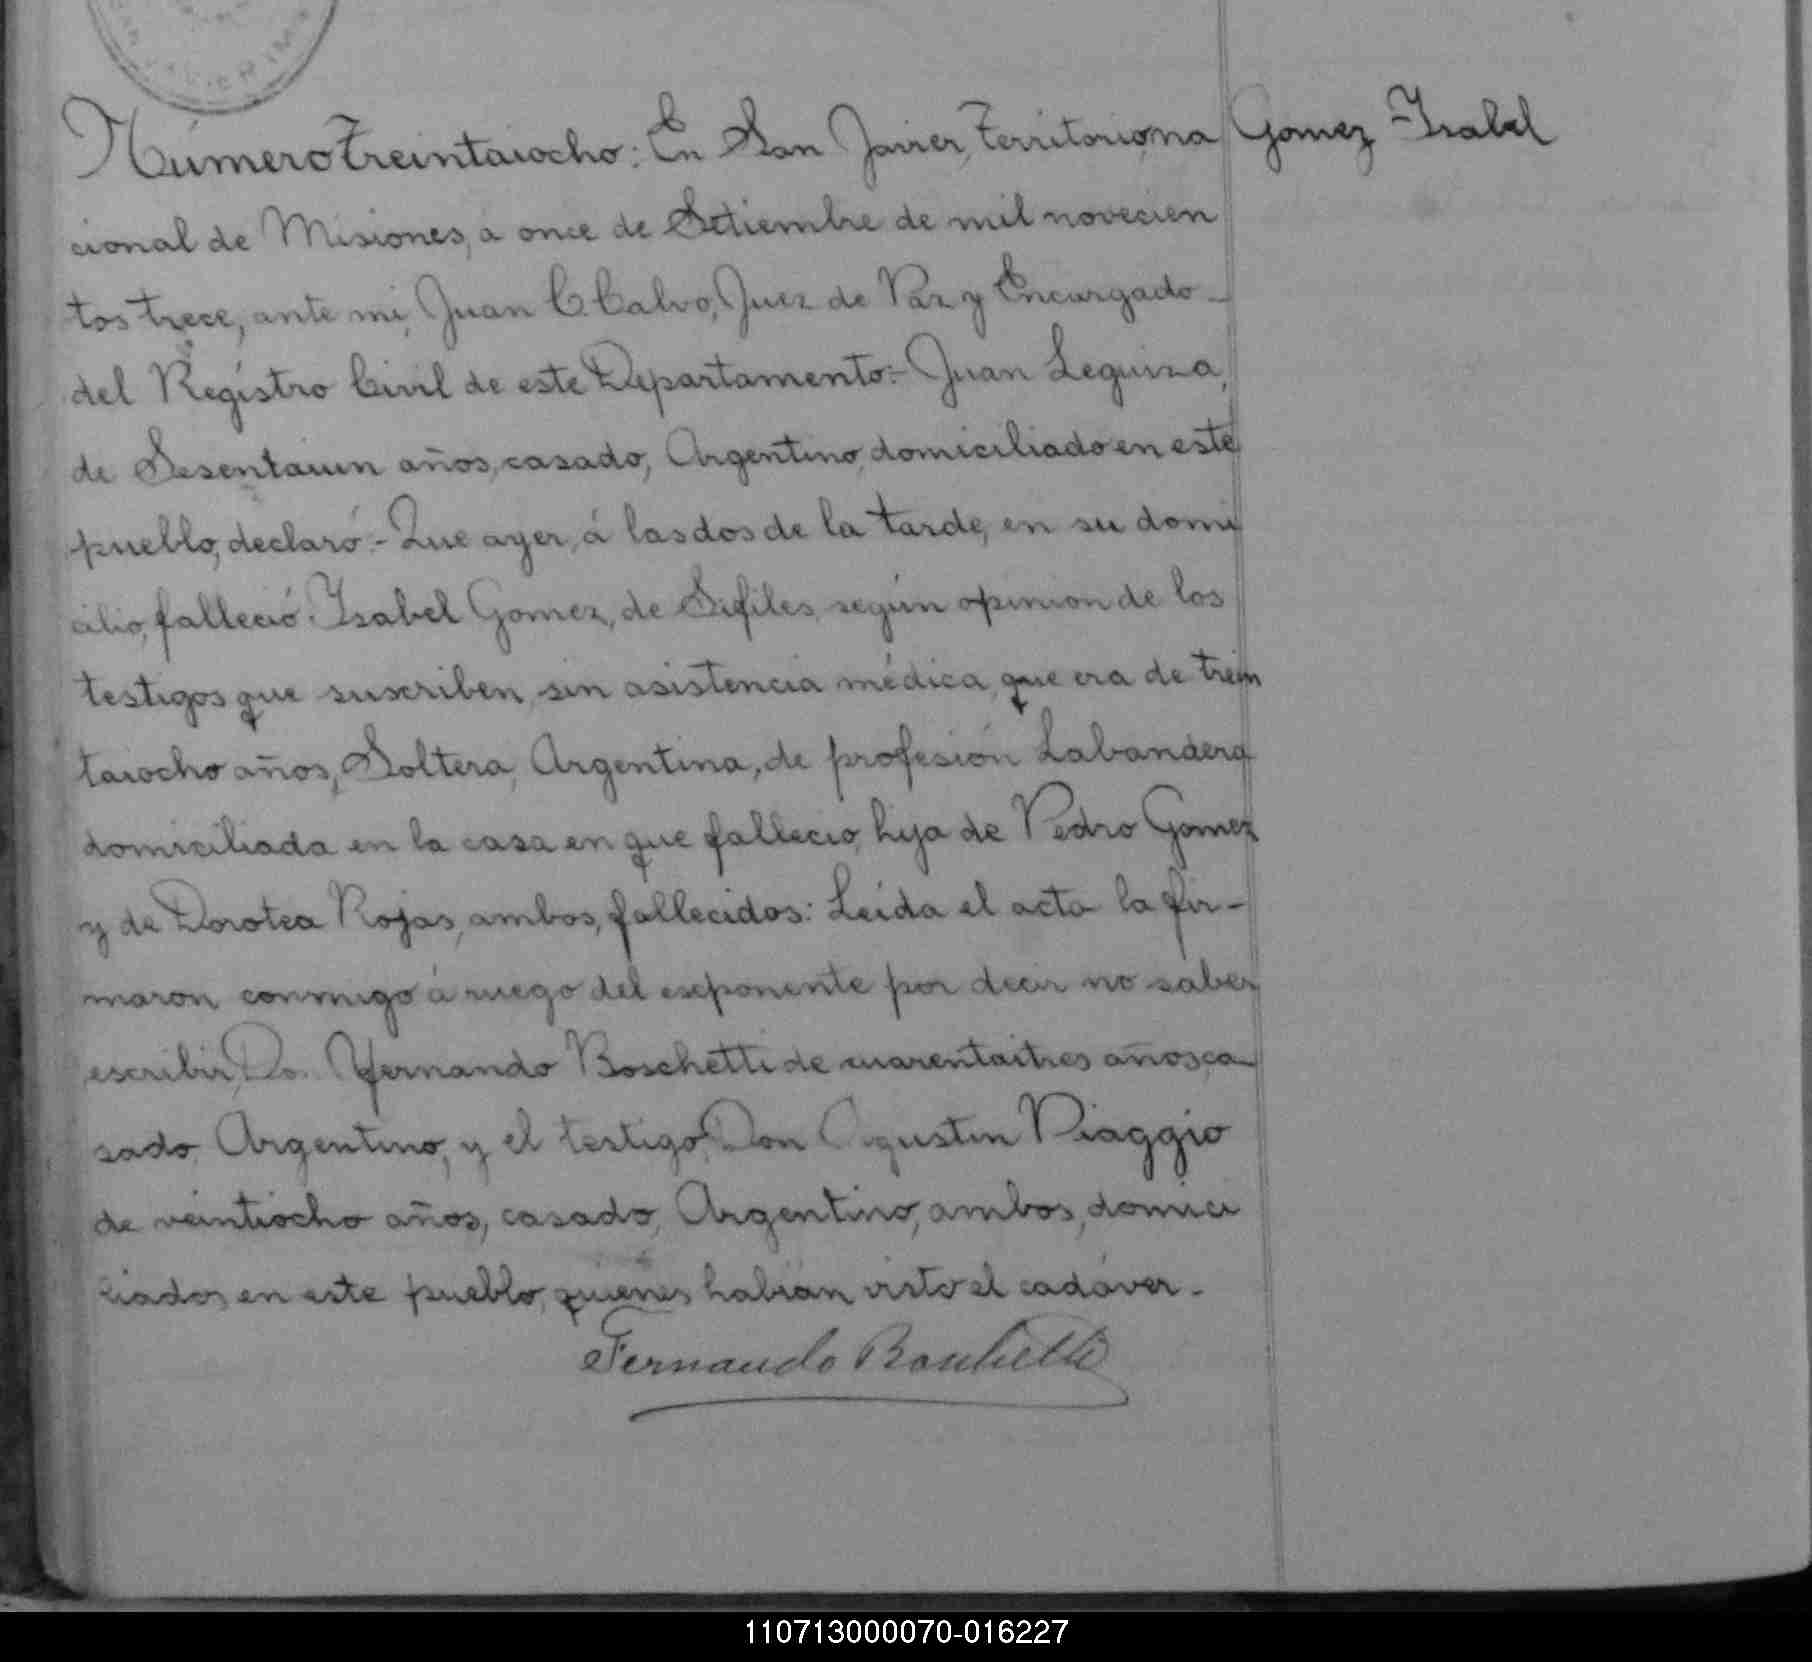 Número treintaiocho: En San Javier, Territorio na
Gomez Isabel
cional de Misiones, a once de Setiembre de mil novecien
tos trece, ante mi, Juan C. Calvo, Juez de Paz y Encargado
del Registro Civil de este Departamento:- Juan Leguiza,
de Sesentaiun años, casado, Argentino, domiciliado en este
pueblo, declaró:- Que ayer, á las dos de la tarde, en su domi
cilio, falleció Isabel Gomez, de Sifiles, según opinion de los
testigos que suscriben, sin asistencia médica, que era de trein
taiocho años, Soltera, Argentina, de profesión Labandera
domiciliada en la casa en que fallecio, hija de Pedro Gomez
y de Dorotea Rojas, ambos, fallecidos: Leída el acta la fir-
maron conmigo á ruego del esponente por decir no saber
escribir, Dn. Fernando Boschetti de cuarentaitres años, ca
sado, Argentino, y el testigo, Don Agustin Piaggio
de veintiocho años, casado, Argentino, ambos, domici
liados en este pueblo, quienes habían visto el cadáver.-
Fernando Boschetti
110713000070-016227